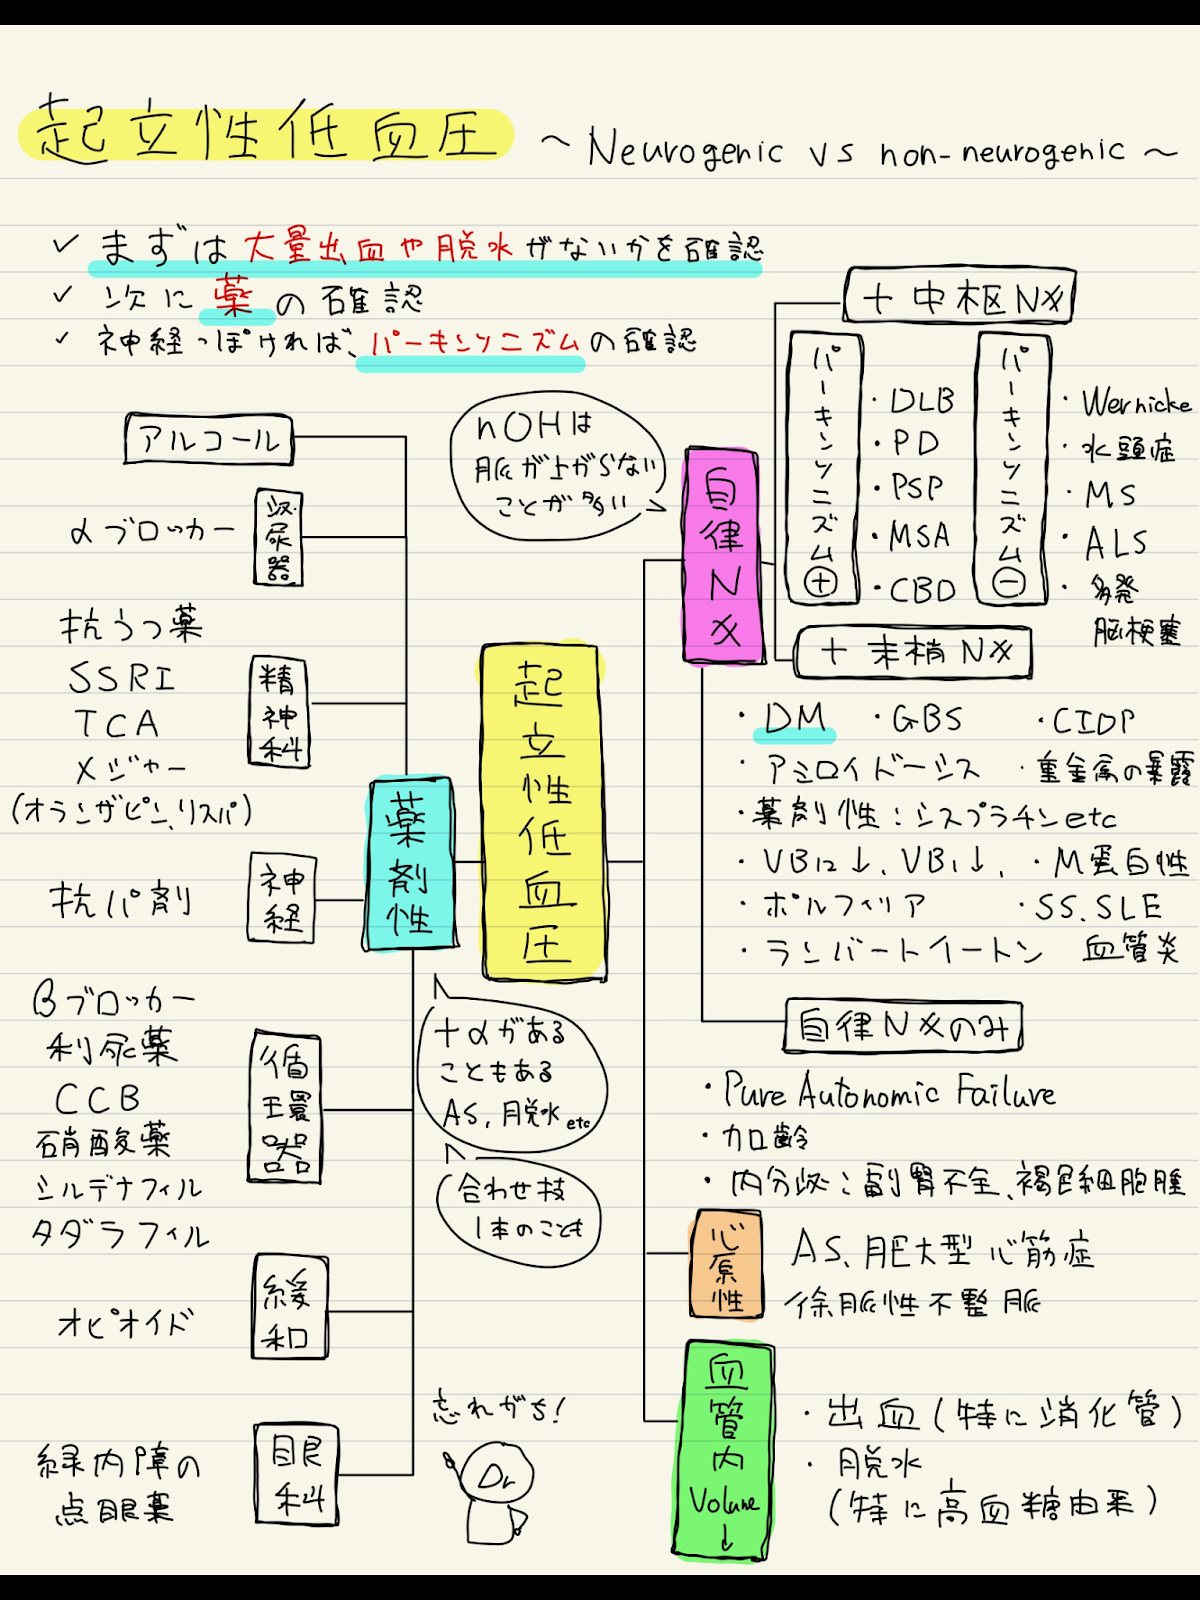 起立性低血圧 ～ Neurogenic vs non-neurogenic ～
✓ まずは大量出血や脱水がないかを確認
✓ 次に薬の確認
✓ 神経っぽければ、パーキンソニズムの確認
アルコール
αブロッカー
泌尿器
抗うつ薬
SSRI
TCA
メジャー
(オランザピン、リスパ)
精神科
抗パ剤
神経
βブロッカー
利尿薬
CCB
硝酸薬
シルデナフィル
タダラフィル
循環器
オピオイド
緩和
緑内障の
点眼薬
眼科
忘れがち!
Dr
薬剤性
+αがある
こともある
AS, 脱水 etc
合わせ技
1本のことも
起立性低血圧
nOHは
脈が上がらない
ことが多い
自律Nメ
+中枢Nメ
パーキンソニズム⊕
・DLB
・PD
・PSP
・MSA
・CBD
パーキンソニズム⊖
・Wernicke
・水頭症
・MS
・ALS
・多発
脳梗塞
+末梢Nメ
・DM ・GBS ・CIDP
・アミロイドーシス ・重金属の暴露
・薬剤性：シスプラチンetc
・VB12↓、VB1↓、 ・M蛋白性
・ポルフィリア ・SS、SLE
・ランバートイートン 血管炎
自律Nメのみ
・Pure Autonomic Failure
・加齢
・内分泌：副腎不全、褐色細胞腫
心原性
AS、肥大型心筋症
徐脈性不整脈
血管内Volume↓
・出血(特に消化管)
・脱水
(特に高血糖由来)